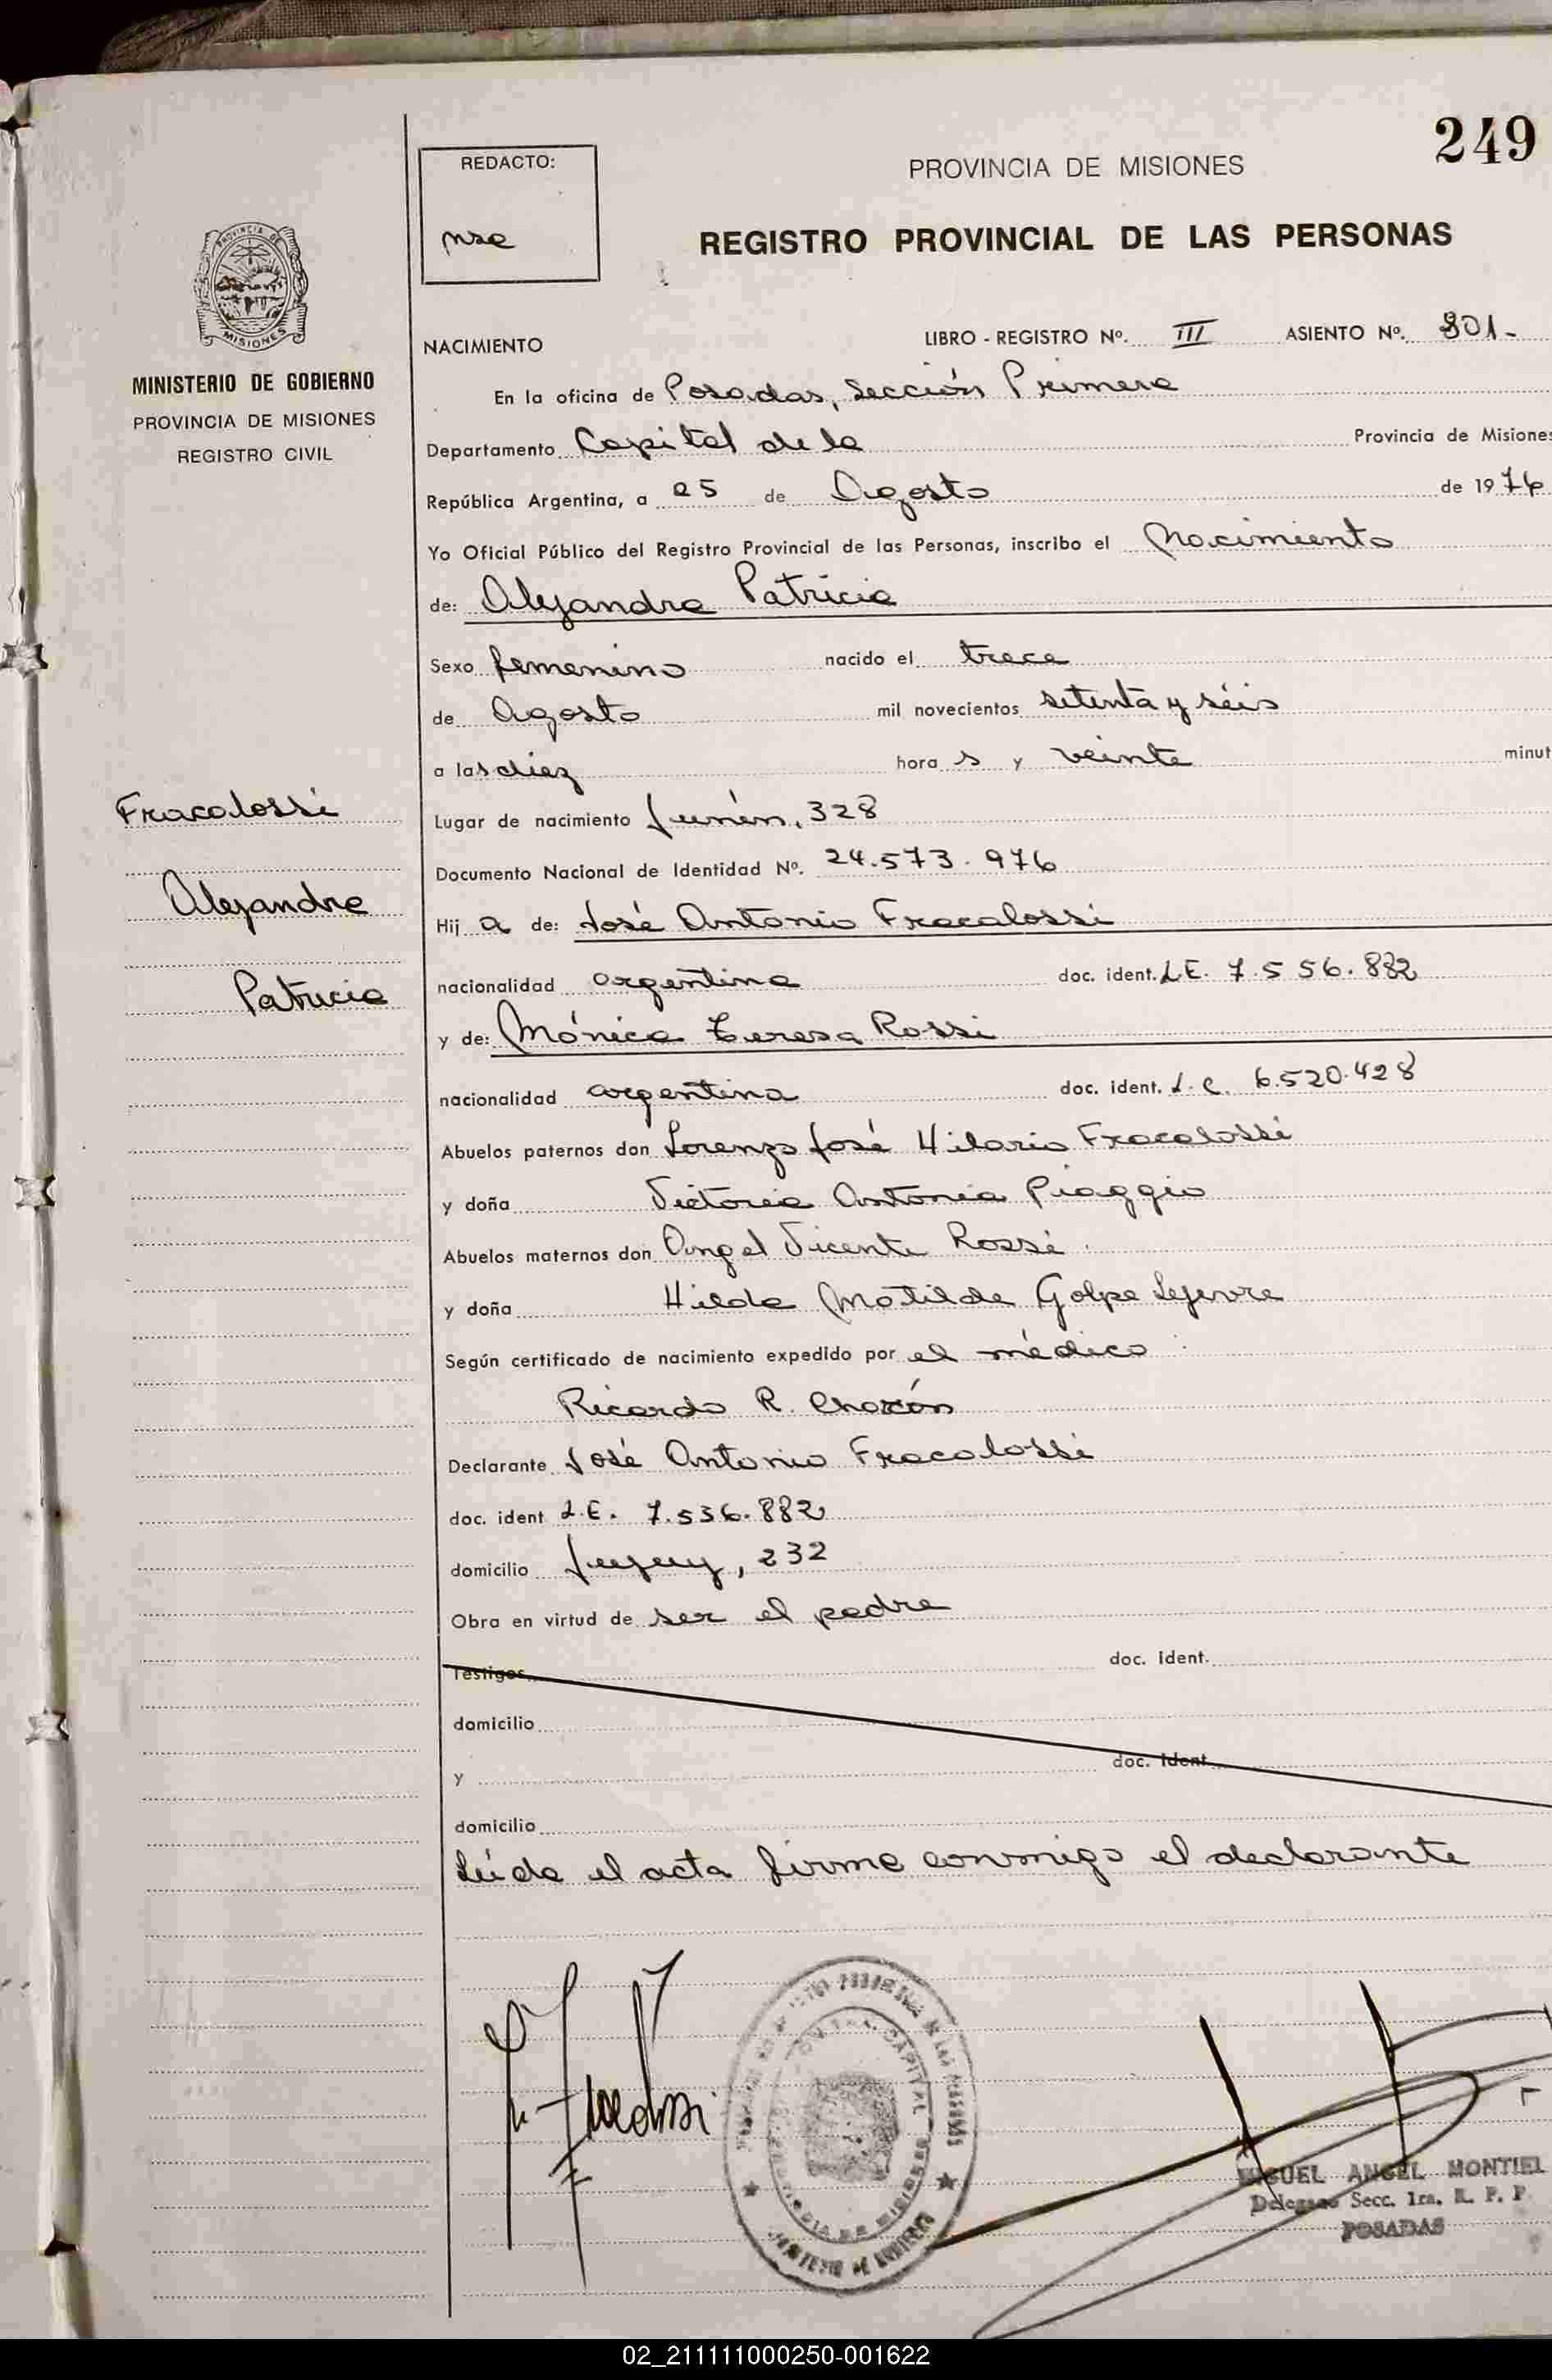 249
REDACTO:
PROVINCIA DE MISIONES
REGISTRO PROVINCIAL DE LAS PERSONAS
MINISTERIO DE GOBIERNO
PROVINCIA DE MISIONES
REGISTRO CIVIL
NACIMIENTO LIBRO - REGISTRO Nº. III ASIENTO Nº. 801-
En la oficina de Posadas, Sección Primera
Departamento Capital de la Provincia de Misiones
República Argentina, a 25 de Agosto de 1976
Yo Oficial Público del Registro Provincial de las Personas, inscribo el Nacimiento
de: Alejandra Patricia
Sexo femenino nacido el trece
de Agosto mil novecientos setenta y séis
a las diez hora s y veinte minut
Fracalossi
Alejandra
Patricia
Lugar de nacimiento Junín, 328
Documento Nacional de Identidad Nº. 24.573.976
Hij a de: José Antonio Fracalossi
nacionalidad argentina doc. ident. L.E. 7.556.882
y de: Mónica Teresa Rossi
nacionalidad argentina doc. ident. L.C. 6.520.428
Abuelos paternos don Lorenzo José Hilario Fracalossi
y doña Victoria Antonia Piaggio
Abuelos maternos don Angel Vicente Rossi
y doña Hilda Matilde Golpe Lefevre
Según certificado de nacimiento expedido por el médico
Ricardo R. Chacón
Declarante José Antonio Fracalossi
doc. ident L.E. 7.536.882
domicilio Jujuy, 232
Obra en virtud de ser el padre
Testigos doc. ident.
domicilio
y doc. ident
domicilio
Leída el acta firma conmigo el declarante
MIGUEL ANGEL MONTIEL
Delegado Secc. 1ra. R. P. P
POSADAS
02_211111000250-001622